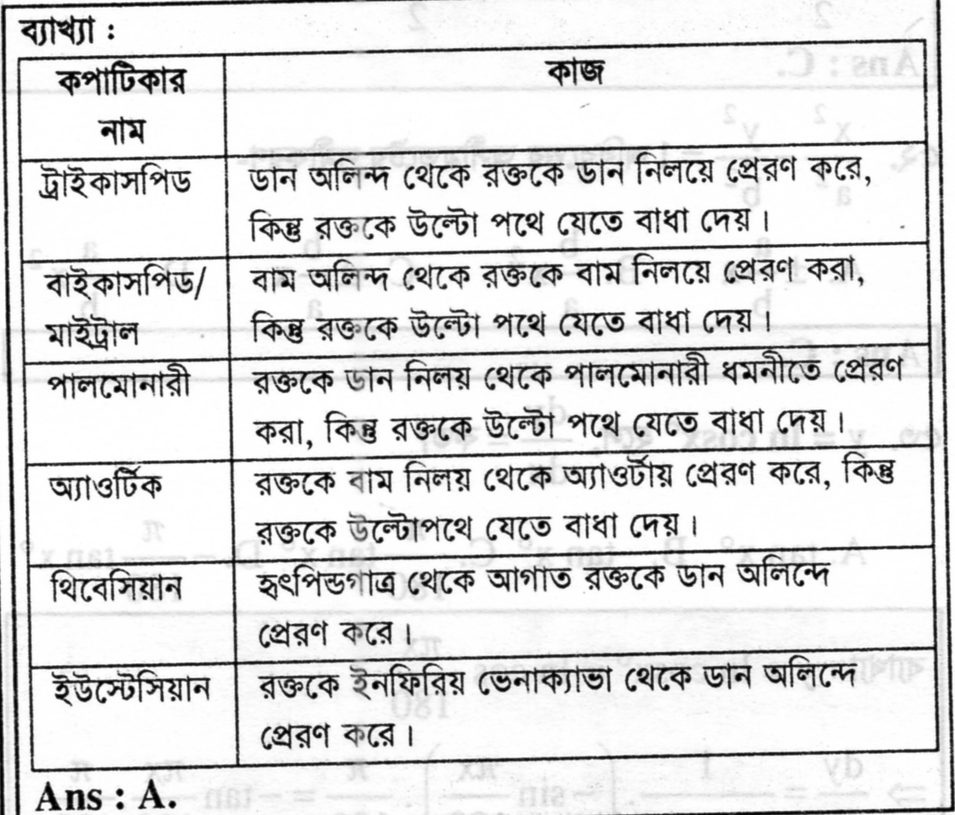 ব্যাখ্যা :
কপাটিকার
নাম
কাজ
ট্রাইকাসপিড
ডান অলিন্দ থেকে রক্তকে ডান নিলয়ে প্রেরণ করে,
কিন্তু রক্তকে উল্টো পথে যেতে বাধা দেয়।
বাইকাসপিড/
মাইট্রাল
বাম অলিন্দ থেকে রক্তকে বাম নিলয়ে প্রেরণ করা,
কিন্তু রক্তকে উল্টো পথে যেতে বাধা দেয়।
পালমোনারী
রক্তকে ডান নিলয় থেকে পালমোনারী ধমনীতে প্রেরণ
করা, কিন্তু রক্তকে উল্টো পথে যেতে বাধা দেয়।
অ্যাওর্টিক
রক্তকে বাম নিলয় থেকে অ্যাওর্টায় প্রেরণ করে, কিন্তু
রক্তকে উল্টোপথে যেতে বাধা দেয়।
থিবেসিয়ান
হৃৎপিন্ডগাত্র থেকে আগাত রক্তকে ডান অলিন্দে
প্রেরণ করে।
ইউস্টেসিয়ান
রক্তকে ইনফিরিয় ভেনাক্যাভা থেকে ডান অলিন্দে
প্রেরণ করে।
Ans : A.